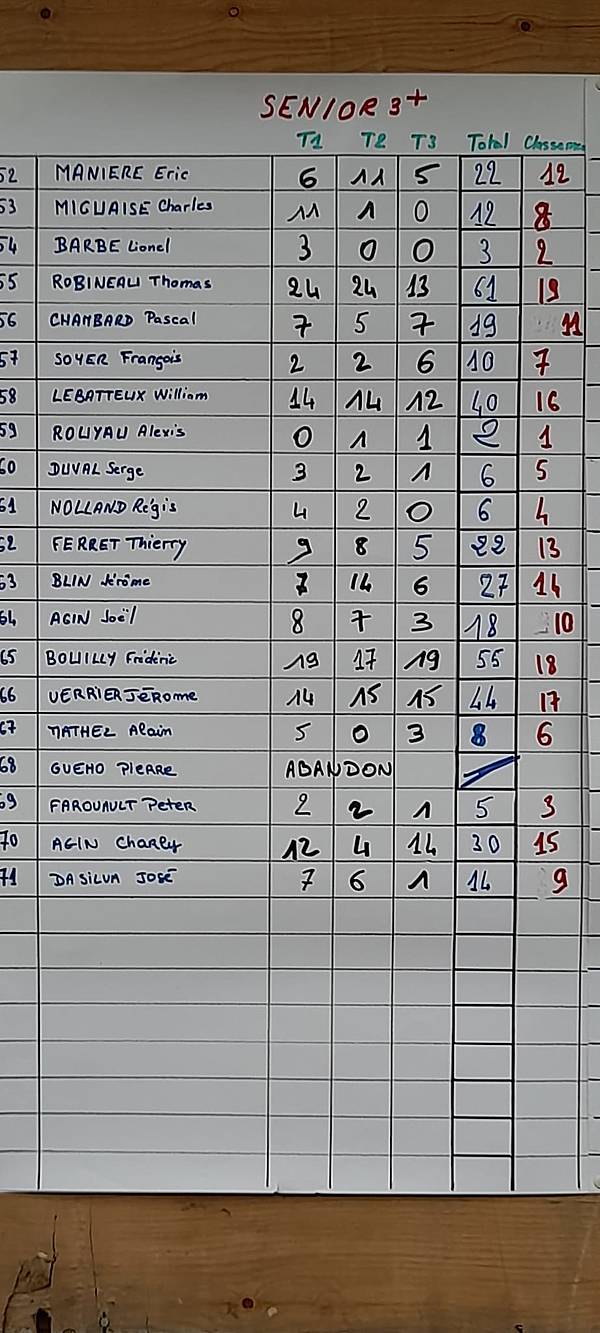 SENIOR 3+
T1 T2 T3 Total Classeme
52 MANIERE Eric 6 11 5 22 12
53 MIGUAISE Charles 11 1 0 12 8
54 BARBE Lionel 3 0 0 3 2
55 ROBINEAU Thomas 24 24 13 61 19
56 CHAMBARD Pascal 7 5 7 19 11
57 SOYER François 2 2 6 10 7
58 LEBATTEUX William 14 14 12 40 16
59 ROUYAU Alexis 0 1 1 2 1
60 DUVAL Serge 3 2 1 6 5
61 NOLLAND Régis 4 2 0 6 4
62 FERRET Thierry 9 8 5 22 13
63 BLIN Jérôme 7 14 6 27 14
64 AGIN Joël 8 7 3 18 10
65 BOUILLY Frédéric 19 17 19 55 18
66 VERRIER JÉROME 14 15 15 44 17
67 MATHEZ Alain 5 0 3 8 6
68 GUEHO PIERRE ABANDON
69 FAROUAULT Peter 2 2 1 5 3
70 AGIN Charly 12 4 14 30 15
71 DA SILVA JOSÉ 7 6 1 14 9